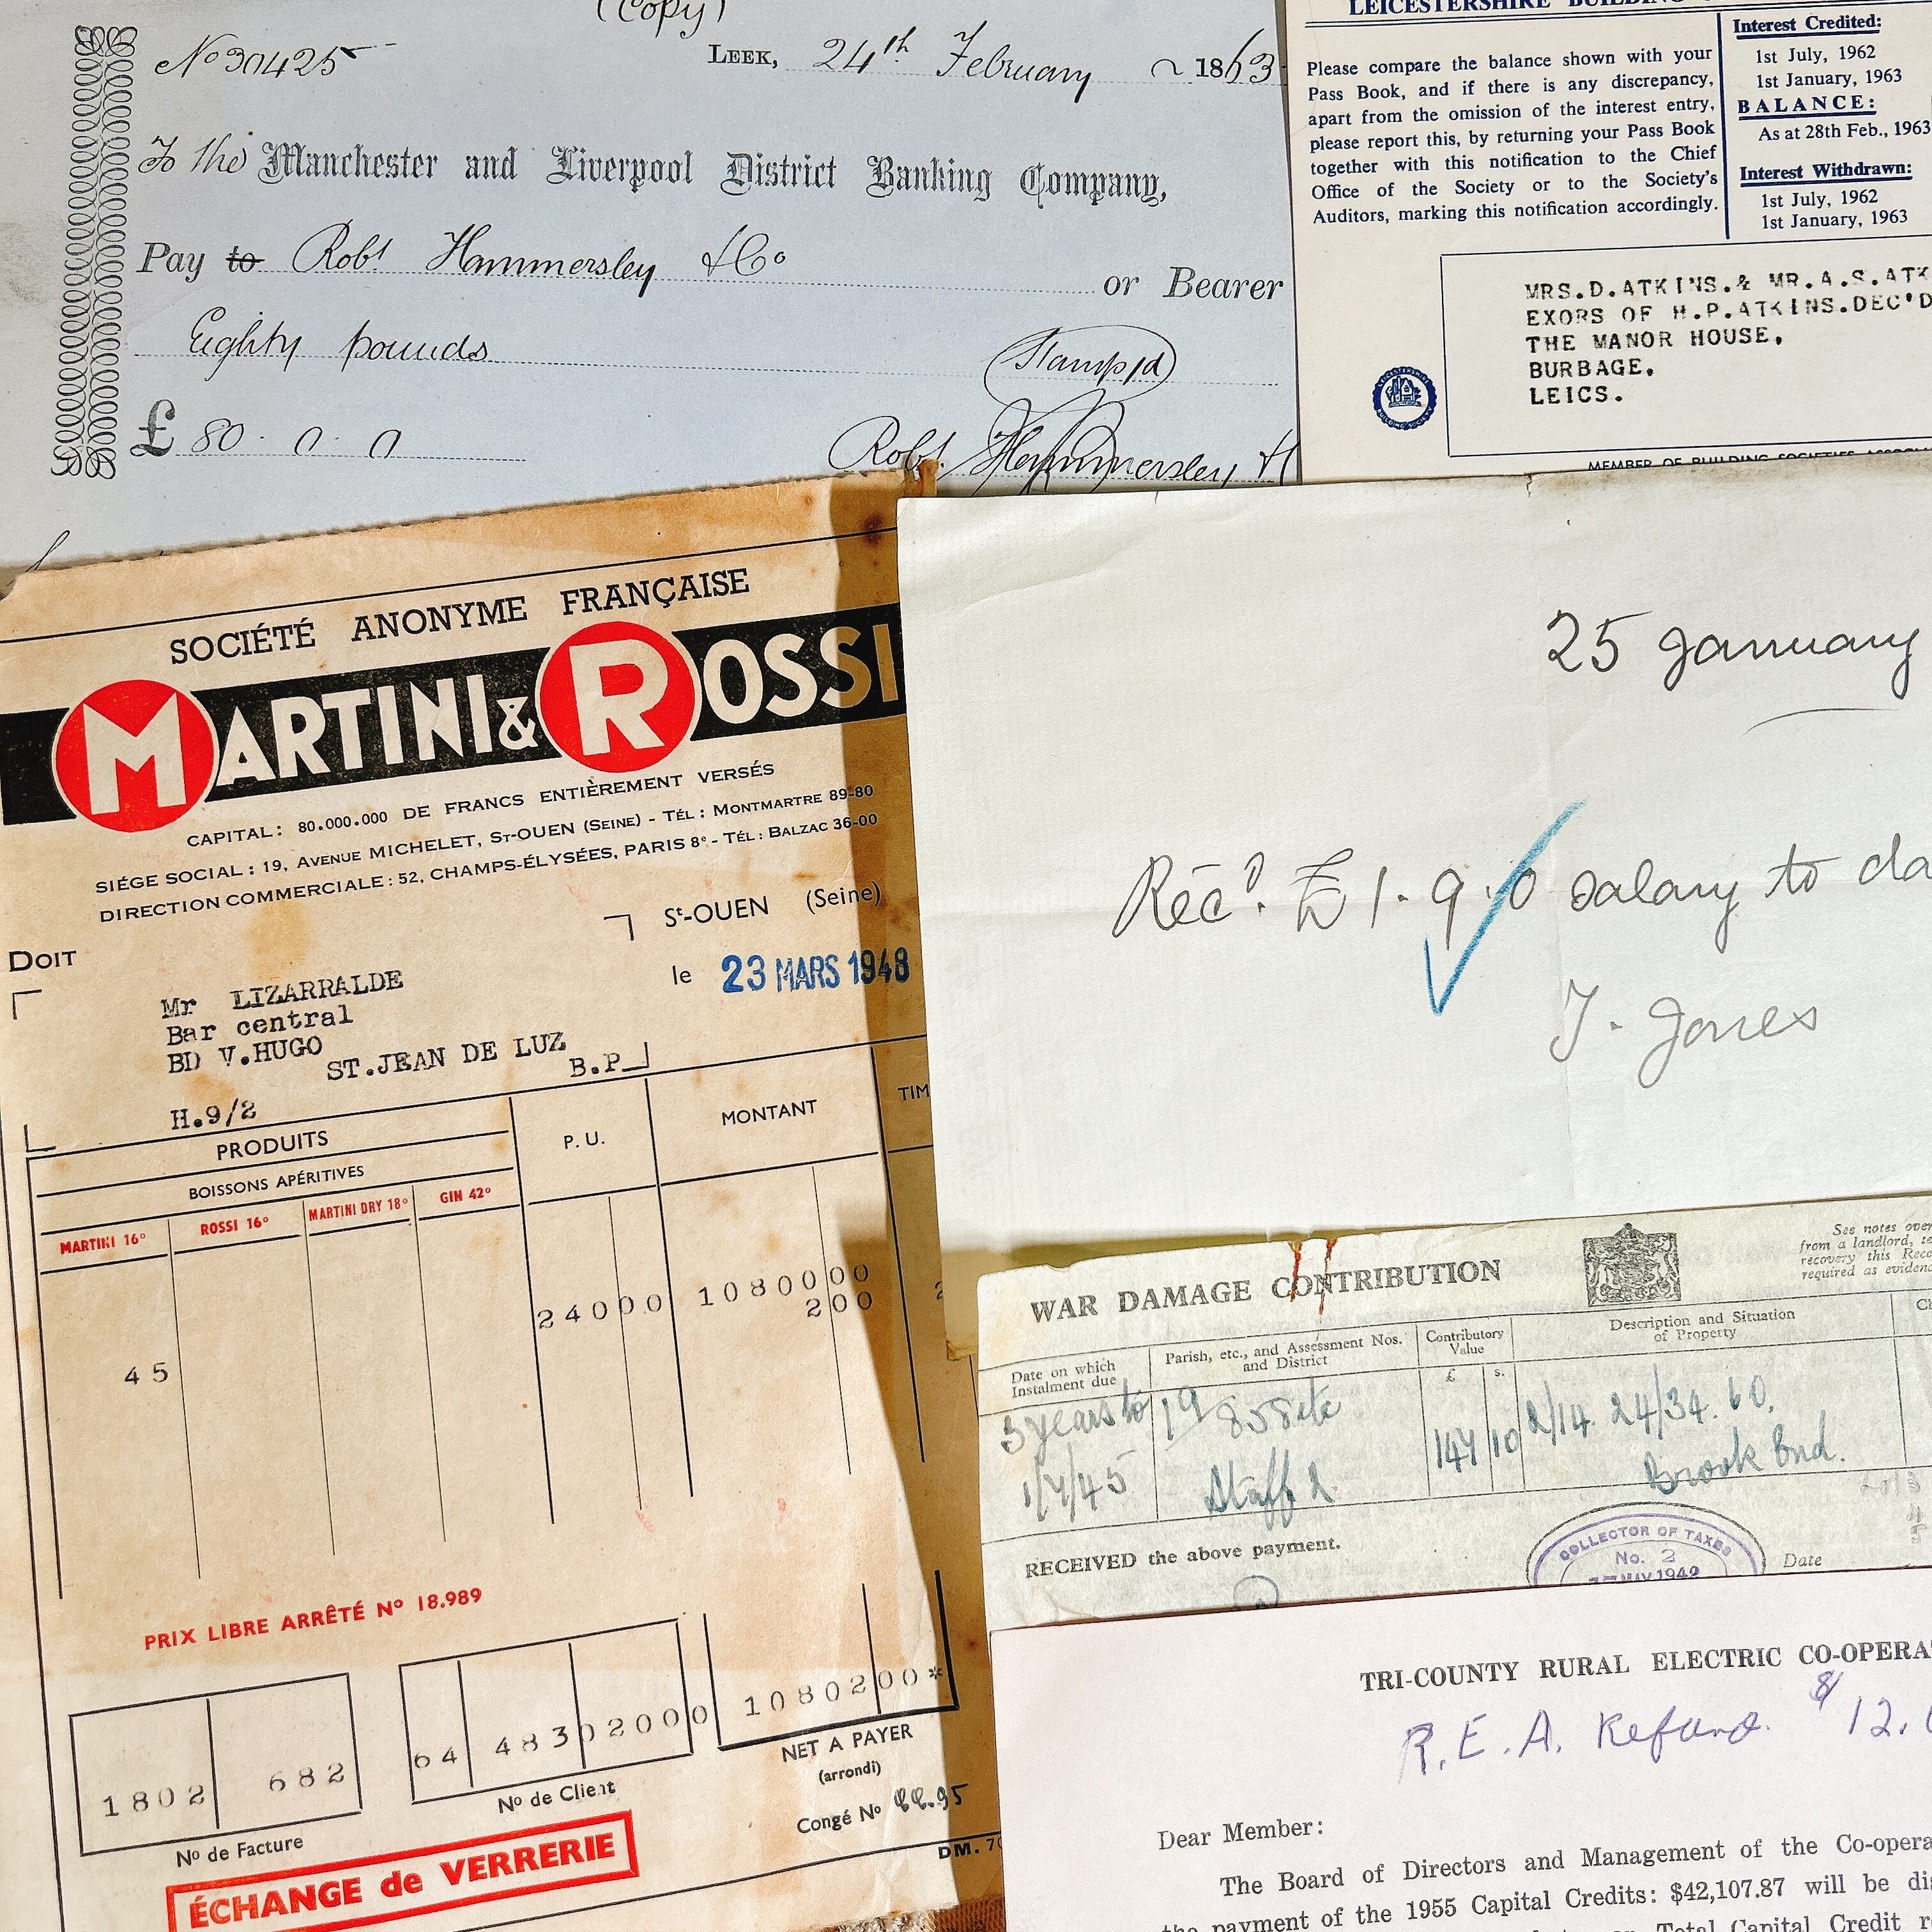 (Copy)
No 30425
LEEK, 24th February 1863
To the Manchester and Liverpool District Banking Company,
Pay to Robt Hammersley & Co or Bearer
Eighty pounds
Stamp 1d
£ 80. 0. 0
Robt Hammersley
LEICESTERSHIRE BUILDING
Please compare the balance shown with your
Pass Book, and if there is any discrepancy,
apart from the omission of the interest entry,
please report this, by returning your Pass Book
together with this notification to the Chief
Office of the Society or to the Society's
Auditors, marking this notification accordingly.
Interest Credited:
1st July, 1962
1st January, 1963
BALANCE:
As at 28th Feb., 1963
Interest Withdrawn:
1st July, 1962
1st January, 1963
MRS.D.ATKINS.& MR.A.S.ATK
EXORS OF H.P.ATKINS.DEC'D
THE MANOR HOUSE,
BURBAGE,
LEICS.
LEICESTERSHIRE BUILDING SOCIETY
MEMBER OF BUILDING SOCIETIES ASSOCI
SOCIÉTÉ ANONYME FRANÇAISE
MARTINI & ROSSI
CAPITAL: 80.000.000 DE FRANCS ENTIÈREMENT VERSÉS
SIÉGE SOCIAL : 19, AVENUE MICHELET, ST-OUEN (SEINE) - TÉL : MONTMARTRE 89-80
DIRECTION COMMERCIALE : 52, CHAMPS-ÉLYSÉES, PARIS 8e - TÉL : BALZAC 36-00
St-OUEN (Seine)
DOIT
le 23 MARS 1948
Mr LIZARRALDE
Bar central
BD V.HUGO
ST.JEAN DE LUZ
B.P
H.9/2
PRODUITS
P. U.
MONTANT
TIM
BOISSONS APÉRITIVES
MARTINI 16°
ROSSI 16°
MARTINI DRY 18°
GIN 42°
24000
1080000
200
2
45
PRIX LIBRE ARRÊTÉ No 18.989
1802 682
64 48302000
1080200*
No de Facture
No de Client
NET A PAYER
(arrondi)
Congé No
DM. 70
ÉCHANGE de VERRERIE
25 January
Recd. £1.9.0 salary to da
T. Jones
WAR DAMAGE CONTRIBUTION
See notes over
from a landlord, te
recovery this Rece
required as evidenc
Date on which
Instalment due
Parish, etc., and Assessment Nos.
and District
Contributory
Value
£ s.
Description and Situation
of Property
3 years to
1/7/45
19 858 etc
147 10
2/14. 24/34. 60.
Brook End.
RECEIVED the above payment.
COLLECTOR OF TAXES
No. 2
MAY 1942
Date
TRI-COUNTY RURAL ELECTRIC CO-OPERA
R.E.A. Refund. $12.
Dear Member:
The Board of Directors and Management of the Co-opera
the payment of the 1955 Capital Credits: $42,107.87 will be di
Total Capital Credit r